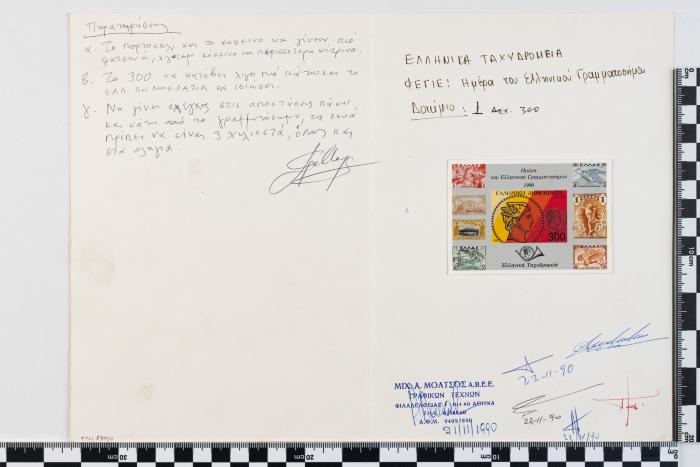 Παρατηρήσεις
α. Το πορτοκαλί και το κόκκινο να γίνουν πιό
φωτεινά, λιγότερο κόκκινο και περισσότερο κίτρινο.
β. Το 300 να κατέβει λίγο πιό κάτω και το
ΕΛΛ. ΔΗΜΟΚΡΑΤΙΑ να
γ. Να γίνει έλεγχος στις αποστάσεις πάνω
και κάτω από το γραμματόσημο, τα κενά
πρέπει να είναι 3 χιλιοστά, όπως και
στα πλάγια.
ΕΛΛΗΝΙΚΑ ΤΑΧΥΔΡΟΜΕΙΑ
ΦΕΓΙΕ: Ημέρα του Ελληνικού Γραμματοσήμου
Δοκίμιο: 1 Δεχ. 300
Ημέρα
του Ελληνικού Γραμματοσήμου
1990
ΕΛΛΗΝΙΚΗ ΔΗΜΟΚΡΑΤΙΑ
300
Ελληνικά Ταχυδρομεία
ΜΙΧ. Α. ΜΟΑΤΣΟΣ Α.Β.Ε.Ε.
ΓΡΑΦΙΚΩΝ ΤΕΧΝΩΝ
ΦΙΛΑΔΕΛΦΕΙΑΣ ΑΘΗΝΑ
Α.Φ.Μ. 94057890
21/11/1990
22-11-90
22-11-90
21/11/90
10cm
30
20
10
0